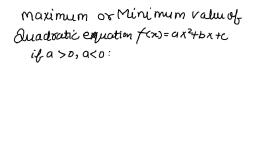 Maximum or Minimum value of
Quadratic equation f(x)=ax²+bx+c
if a >0, a<0: